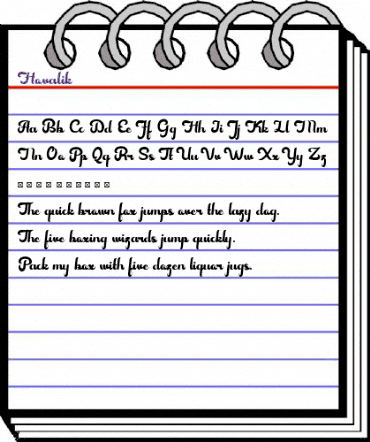 Havalik
Aa Bb Cc Dd Ee Ff Gg Hh Ii Jj Kk Ll Mm
Nn Oo Pp Qq Rr Ss Tt Uu Vv Ww Xx Yy Zz
The quick brown fox jumps over the lazy dog.
The five boxing wizards jump quickly.
Pack my box with five dozen liquor jugs.